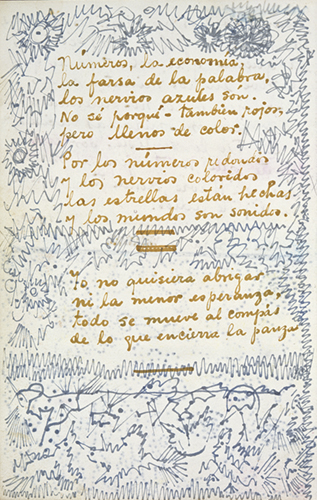 Números, la economía,
la farsa de la palabra,
los nervios azules son.
No sé porqué - también rojos,
pero llenos de color.
Por los números redondos
y los nervios coloridos
las estrellas están hechas
y los mundos son sonidos.
Yo no quisiera abrigar
ni la menor esperanza,
todo se mueve al compás
de lo que encierra la panza